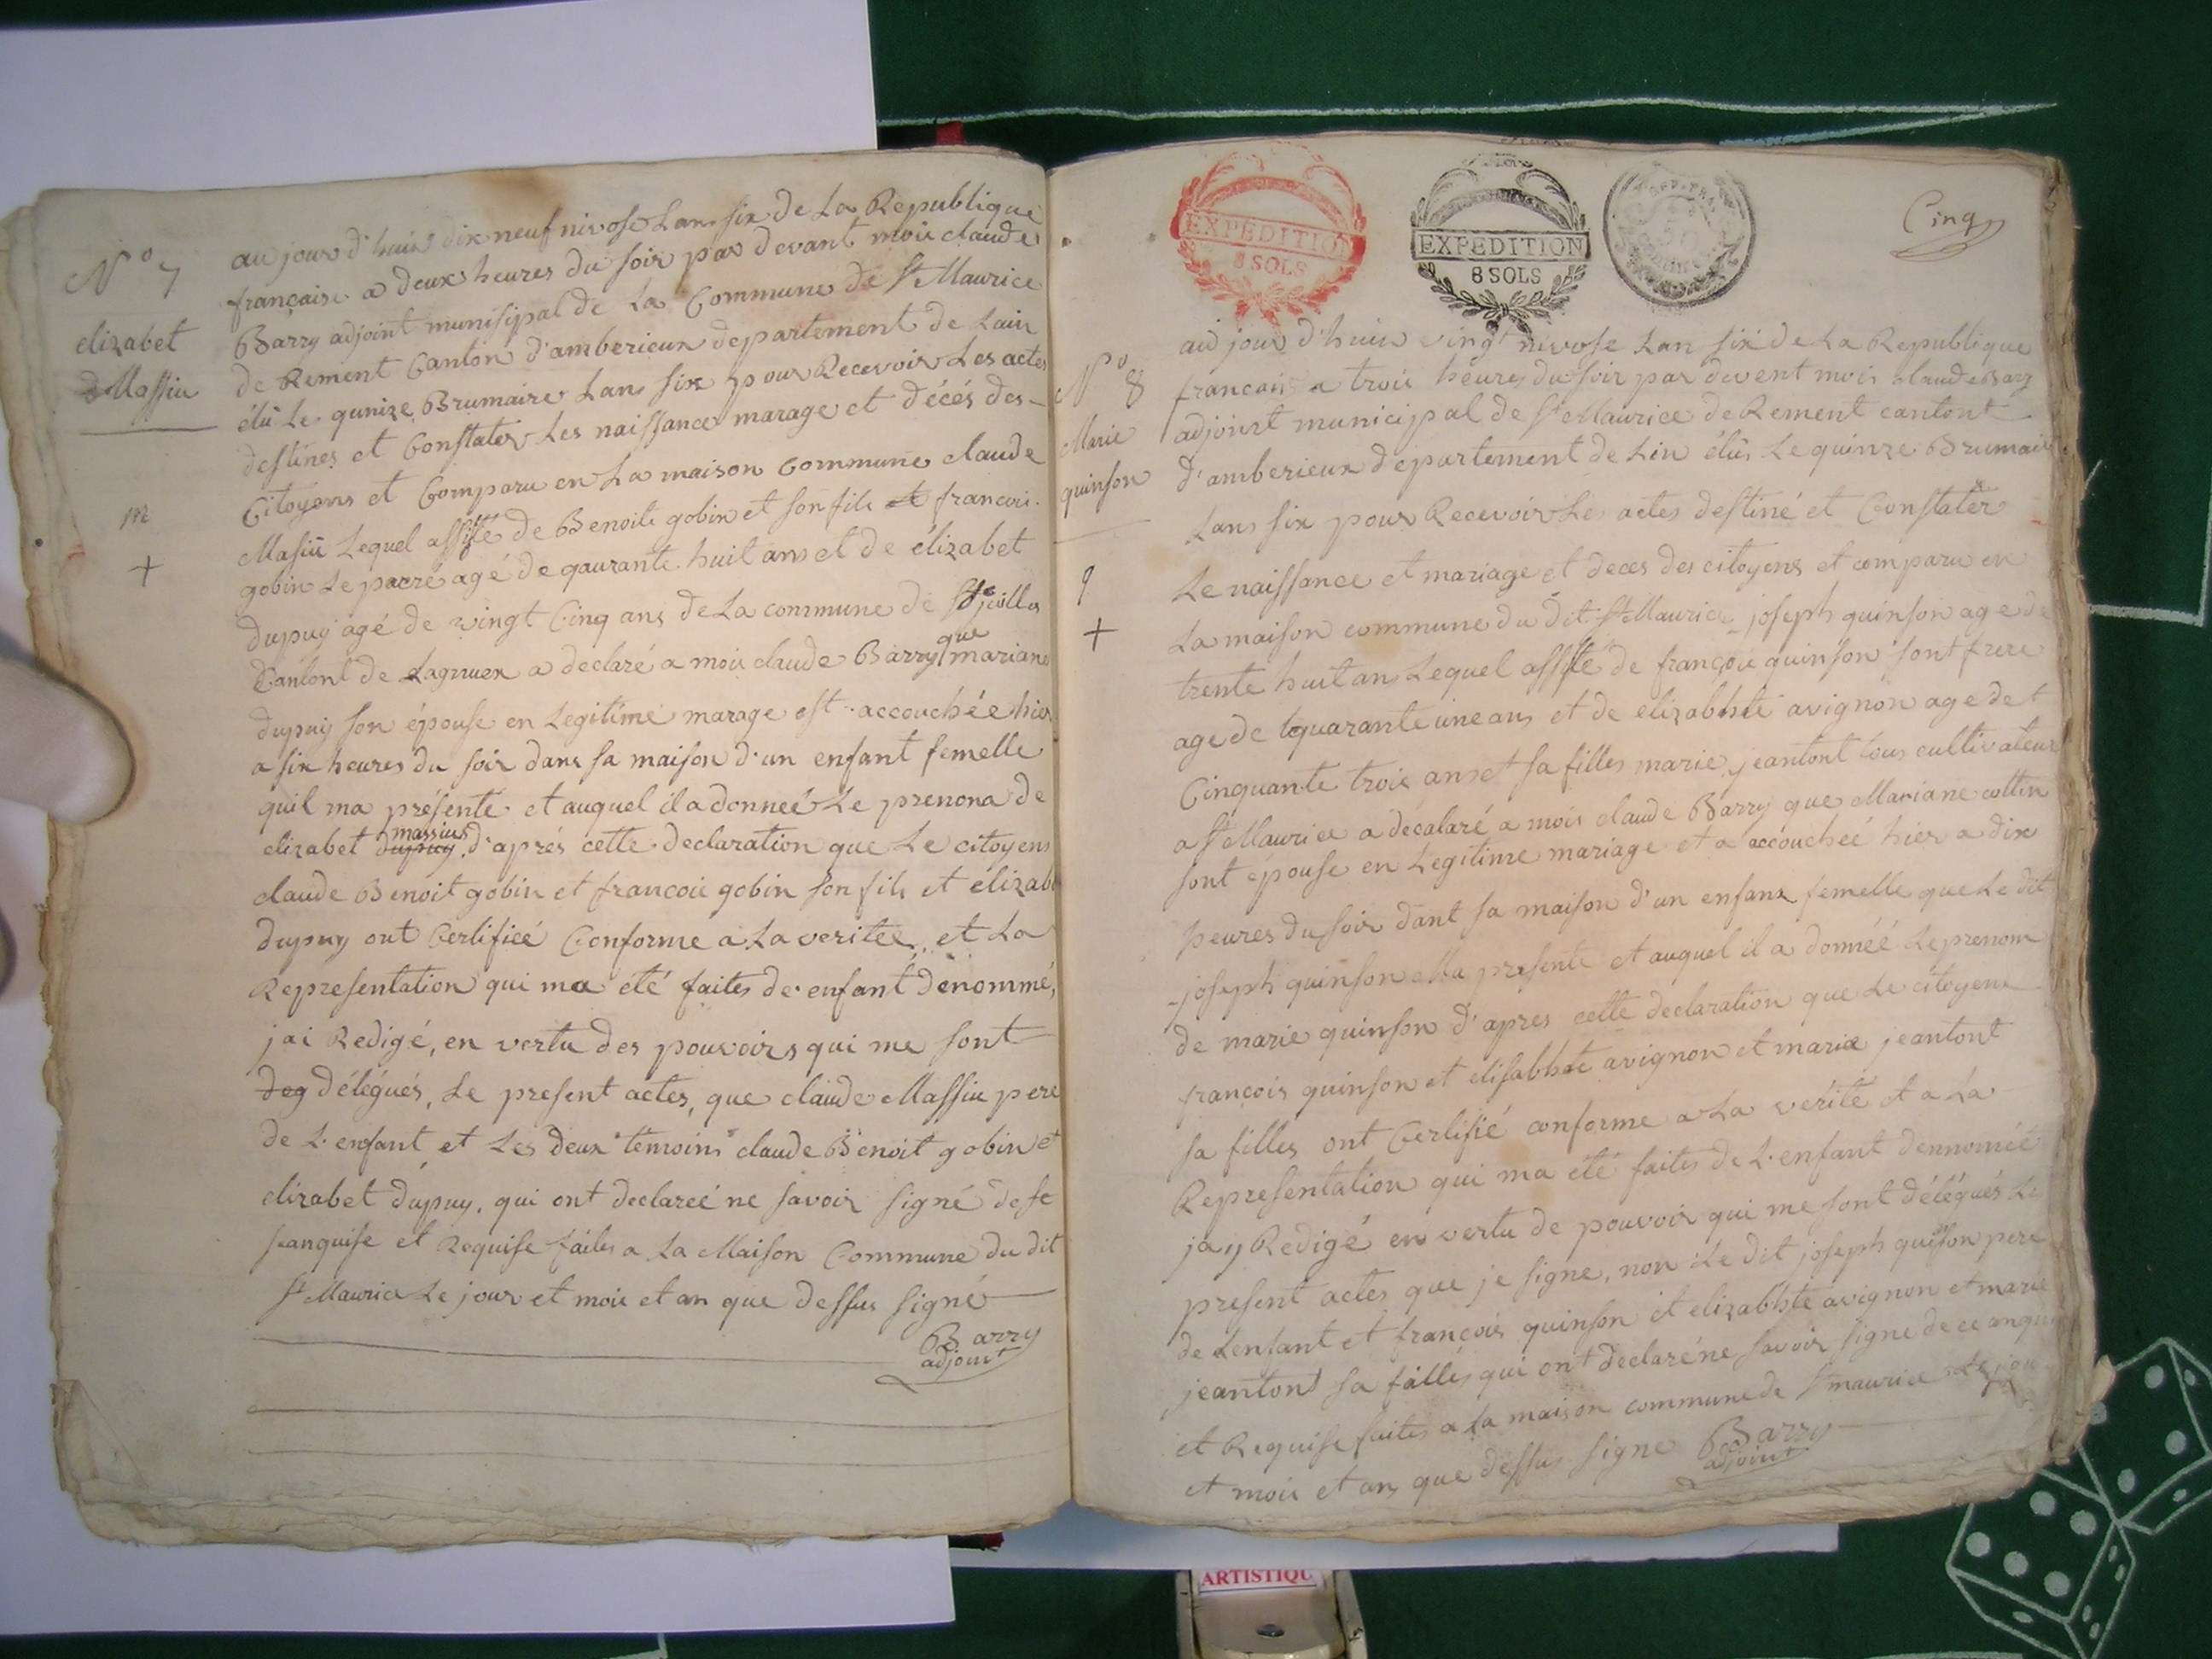 N° 7
elizabet
Massiu
m
+
au jour d'huis dix neuf nivose Lan six de La Republique
française a deux heures du soir par devant mois claude
Barry adjoint munisipal de La Commune de St Maurice
de Rement Canton d'amberieux departement de Lain
élü Le qunize Brumaire Lans six pour Recevoir Les actes
destines et Constater Les naissance marage et décés des
Citoyens et Comparu en La maison Commune claude
Masiü Lequel assité de Benoite gobin et son fils francois
gobin Le parré agé de qaurante huit ans et de élizabet
dupuy agé de vingt Cinq ans de La commune de
Cantont de Lagnuex a declaré a mois claude Barry que mariane
dupuy son épouse en Legitime marage est accouchée hier
a six heures du soir dans sa maison d'un enfant femelle
quil ma présenté et auquel il a donneé Le prenona de
elizabet dupuy massiu d'aprés cette declaration que Le citoyens
claude Benoit gobin et francois gobin son fils et elizabe
dupuy ont Certifieé Conforme a La veritée et La
Representation qui ma été faites de enfant denommé,
jai Redigé, en vertu des pouvoirs qui me sont
deg délégués, Le present actes, que claude Massiu pere
de L'enfant et Les deux temoins claude Benoit gobin et
elizabet dupuy, qui ont declareé ne savoir signé de se
sanquise et Requise faites a La Maison Commune du dit
St Maurice Le jour et mois et an que dessus signé
Barry
adjoint
EXPÉDITION
8 SOLS
EXPEDITION
8 SOLS
Cinq
N° 8
Marie
quinson
9
+
au jour d'huis vingt nivose Lan six de La Republique
francais a trois heures du soir par devent mois claude Bary
adjoint municipal de St Maurice de Rement cantont
d'amberieux departement de Lin élüs Le quinze Brumair
Lans six pour Recevoir Les actes destiné et Constater
Le naissance et mariage et deces des citoyens et comparu en
La maison commune du dit St Maurice joseph quinson age de
trente huit ans Lequel assité de françois quinson sont frere
age de quarante une ans et de avignon age de
Cinquante trois ans et sa filles marie jeantont tous cultivateur
a St Maurice a décalaré a mois claude Barry que Mariane collin
sont épouse en Legitime mariage et a accoucheé hier a dix
heures du soir dant sa maison d'un enfant femelle que Le dit
joseph quinson Ma presente et auquel il a donnéé Le prenom
de marie quinson d'apres cette declaration que Le citoyens
françois quinson et avignon et marie jeantont
sa filles ont Certifié conforme a La vérité et a La
Representation qui ma été faites de L'enfant dennomée
jay Redigé en vertu de pouvoir qui me sont délégués Le
present actes que je signe, non Le dit joseph quison pere
de Lenfant et françois quinson et avignon et marie
jeantont sa filles qui ont declaré ne savoir signe de ce anquis
et Requise faites a La maison commune de St maurice Le jou
et mois et ans que dessus signe Barry
adjoint
ARTISTIQU